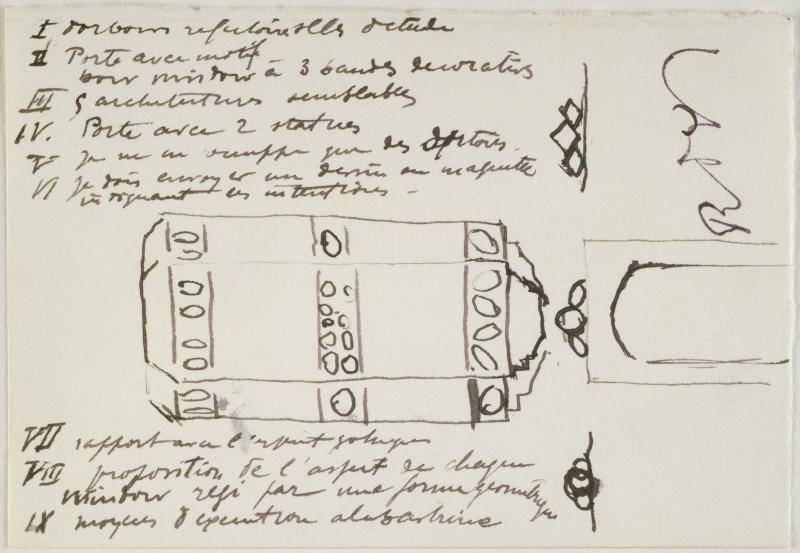 I
II Porte avec motif
pour window à 3 bandes decoratives
III 5 architectures semblables
IV. Porte avec 2 statues
V je ne m occuppe que des
VI je dois envoyer un dessin ou maquette
indiquant les intentions -
VII rapport avec l'esprit gothique
VIII proposition de l'aspect de chaque
window régi par une forme géométrique
IX moyens d'execution